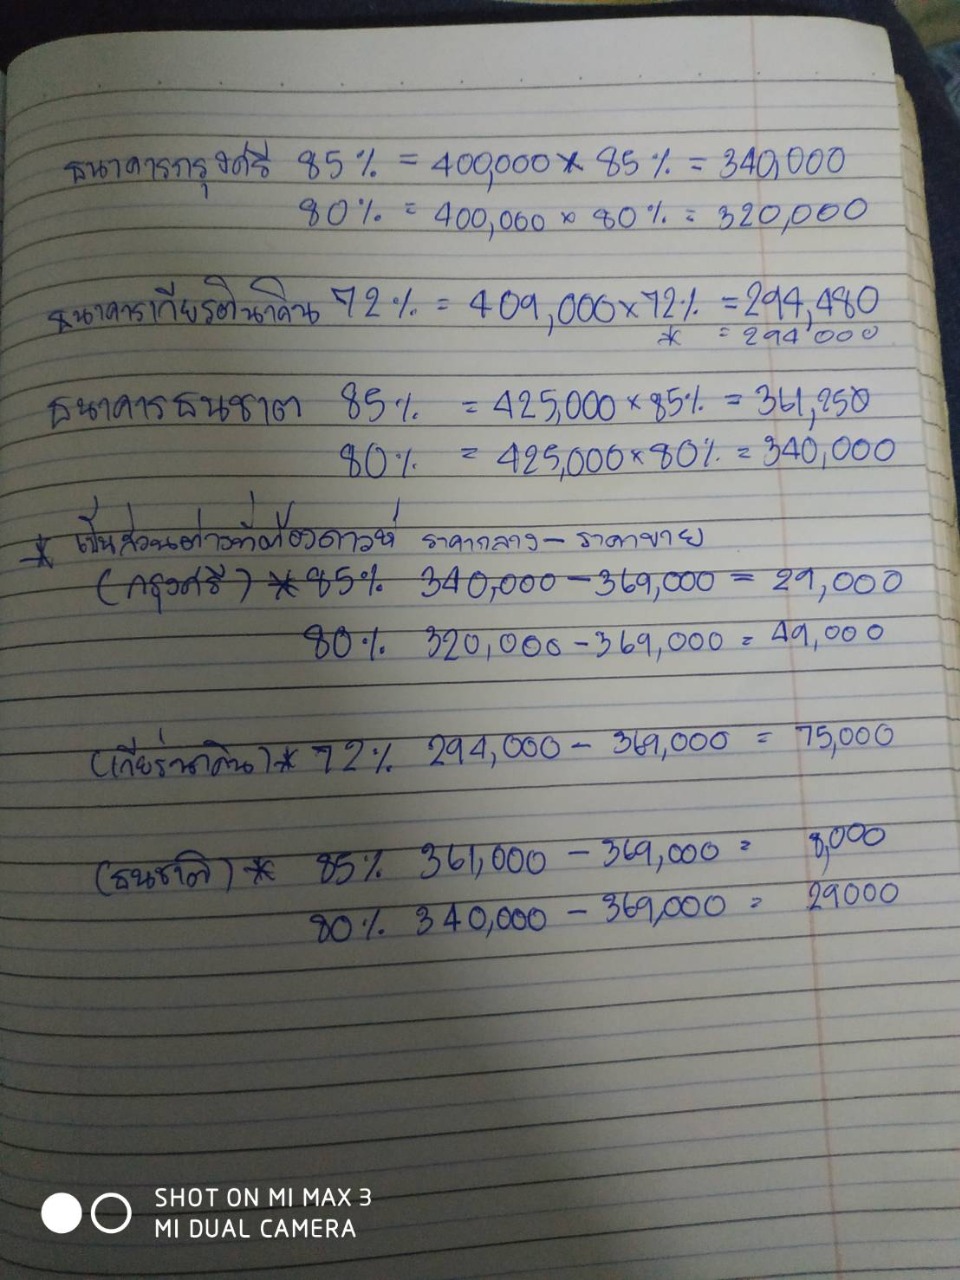 ธนาคารกรุงศรี 85% = 400,000 × 85% = 340,000
80% = 400,000 × 80% = 320,000
ธนาคารเกียรตินาคิน 72% = 409,000 × 72% = 294,480
* = 294,000
ธนาคารธนชาต 85% = 425,000 × 85% = 361,250
80% = 425,000 × 80% = 340,000
* เป็นส่วนต่างที่ต้องดาวน์ ราคากลาง - ราคาขาย
(กรุงศรี) * 85% 340,000 - 369,000 = 29,000
80% 320,000 - 369,000 = 49,000
(เกียรนาคิน) * 72% 294,000 - 369,000 = 75,000
(ธนชาติ) * 85% 361,000 - 369,000 = 8,000
80% 340,000 - 369,000 = 29000
SHOT ON MI MAX 3
MI DUAL CAMERA